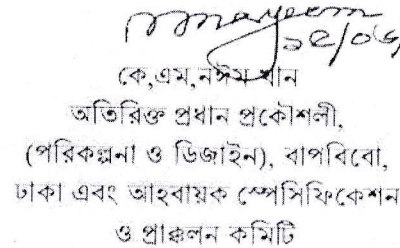 কে,এম,নঈম খান
অতিরিক্ত প্রধান প্রকৌশলী,
(পরিকল্পনা ও ডিজাইন), বাপবিবো,
ঢাকা এবং আহবায়ক স্পেসিফিকেশন
ও প্রাক্কলন কমিটি